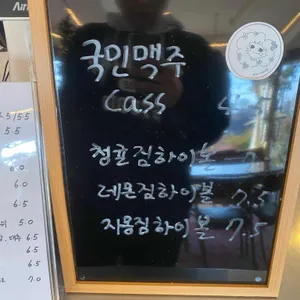 국민맥주
Cass
청귤짐하이볼 7.
레몬짐하이볼 7.5
자몽짐하이볼 7.5
5.5
6.0
6.0
6.5
5.0
6.5
6.5
6.5
7.0